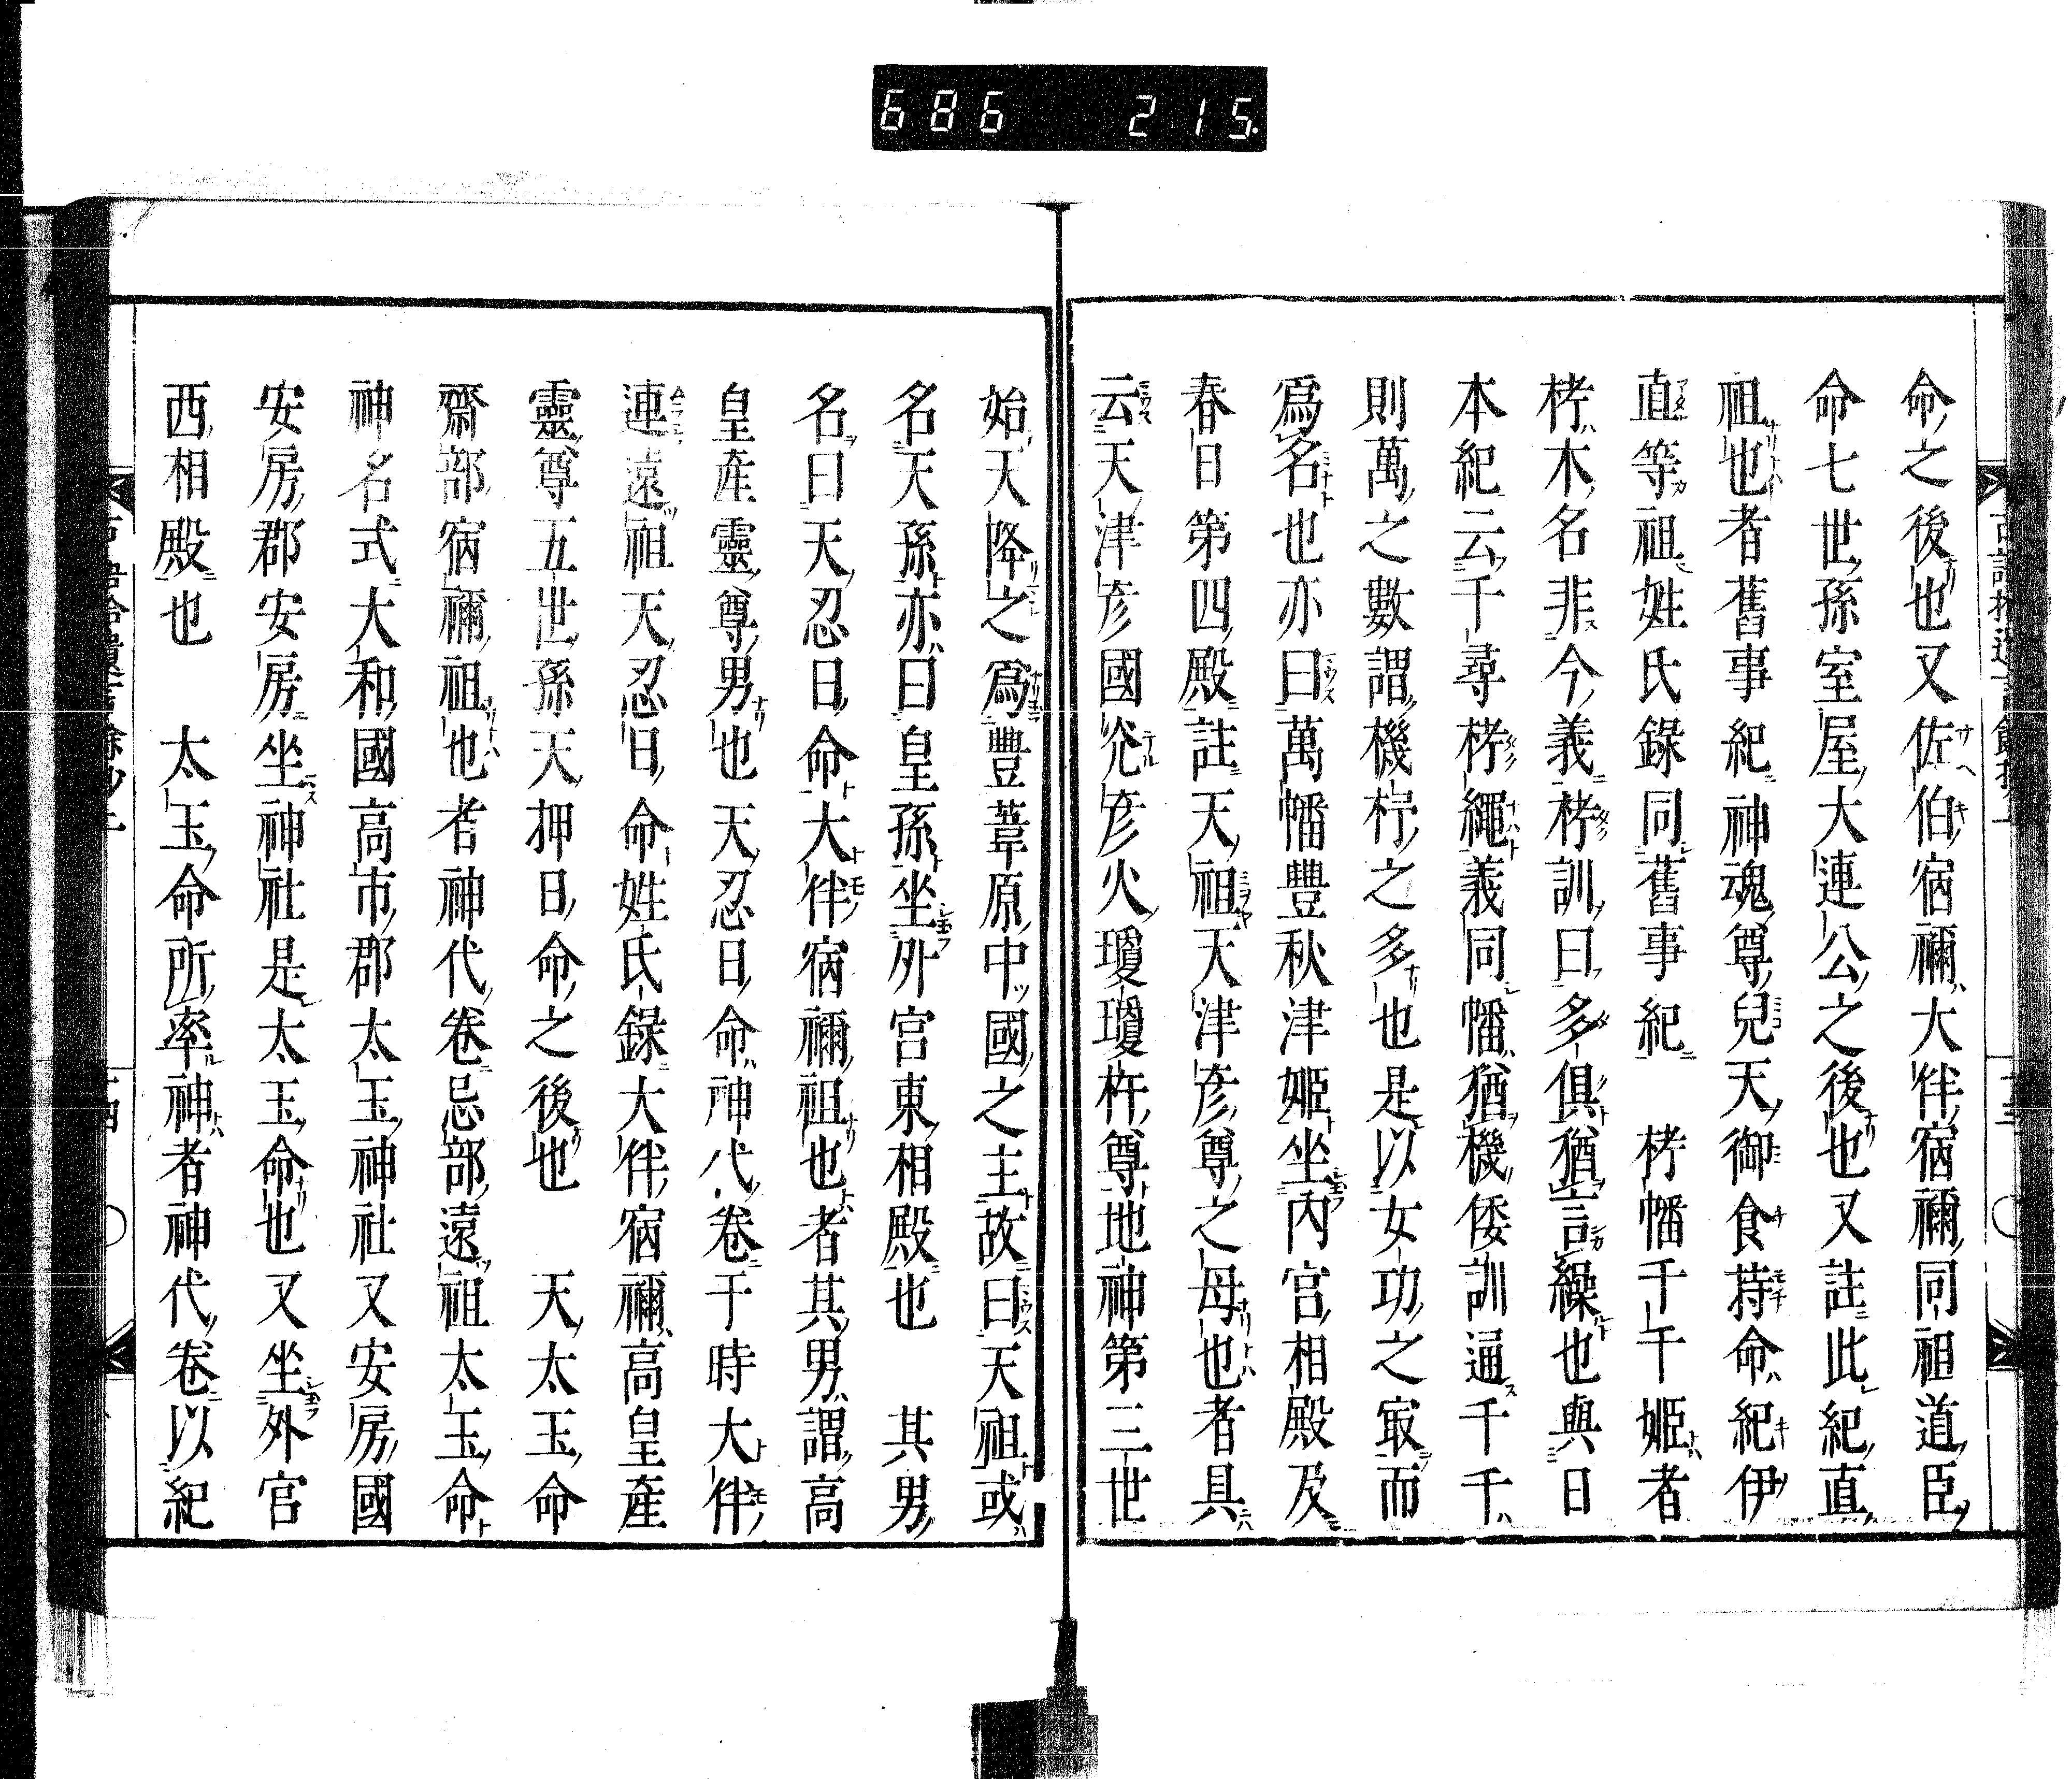 686 215
命之後也又佐伯宿禰大伴宿禰同祖道臣
命七世孫室屋大連公之後也又註此紀直
祖也者舊事紀神魂尊兒天御食持命紀伊
直等祖姓氏錄同舊事紀　栲幡千千姬者
栲木名非今義栲訓曰多俱猶言繰也與日
本紀云千尋栲繩義同幡猶機倭訓通千千
則萬之數謂機杼之多也是以女功之㝡而
爲名也亦曰萬幡豐秋津姬坐內宮相殿及
春日第四殿註天祖天津彥尊之母也者具
云天津彥國光彥火瓊瓊杵尊地神第三世
始天降之爲豐葦原中國之主故曰天祖或
名天孫亦曰皇孫坐外宮東相殿也　其男
名曰天忍日命大伴宿禰祖也者其男謂高
皇產靈尊男也天忍日命神代卷于時大伴
連遠祖天忍日命姓氏錄大伴宿禰高皇產
靈尊五世孫天押日命之後也　天太玉命
齋部宿禰祖也者神代卷忌部遠祖太玉命
神名式大和國高市郡太玉神社又安房國
安房郡安房坐神社是太玉命也又坐外宮
西相殿也　太玉命所率神者神代卷以紀